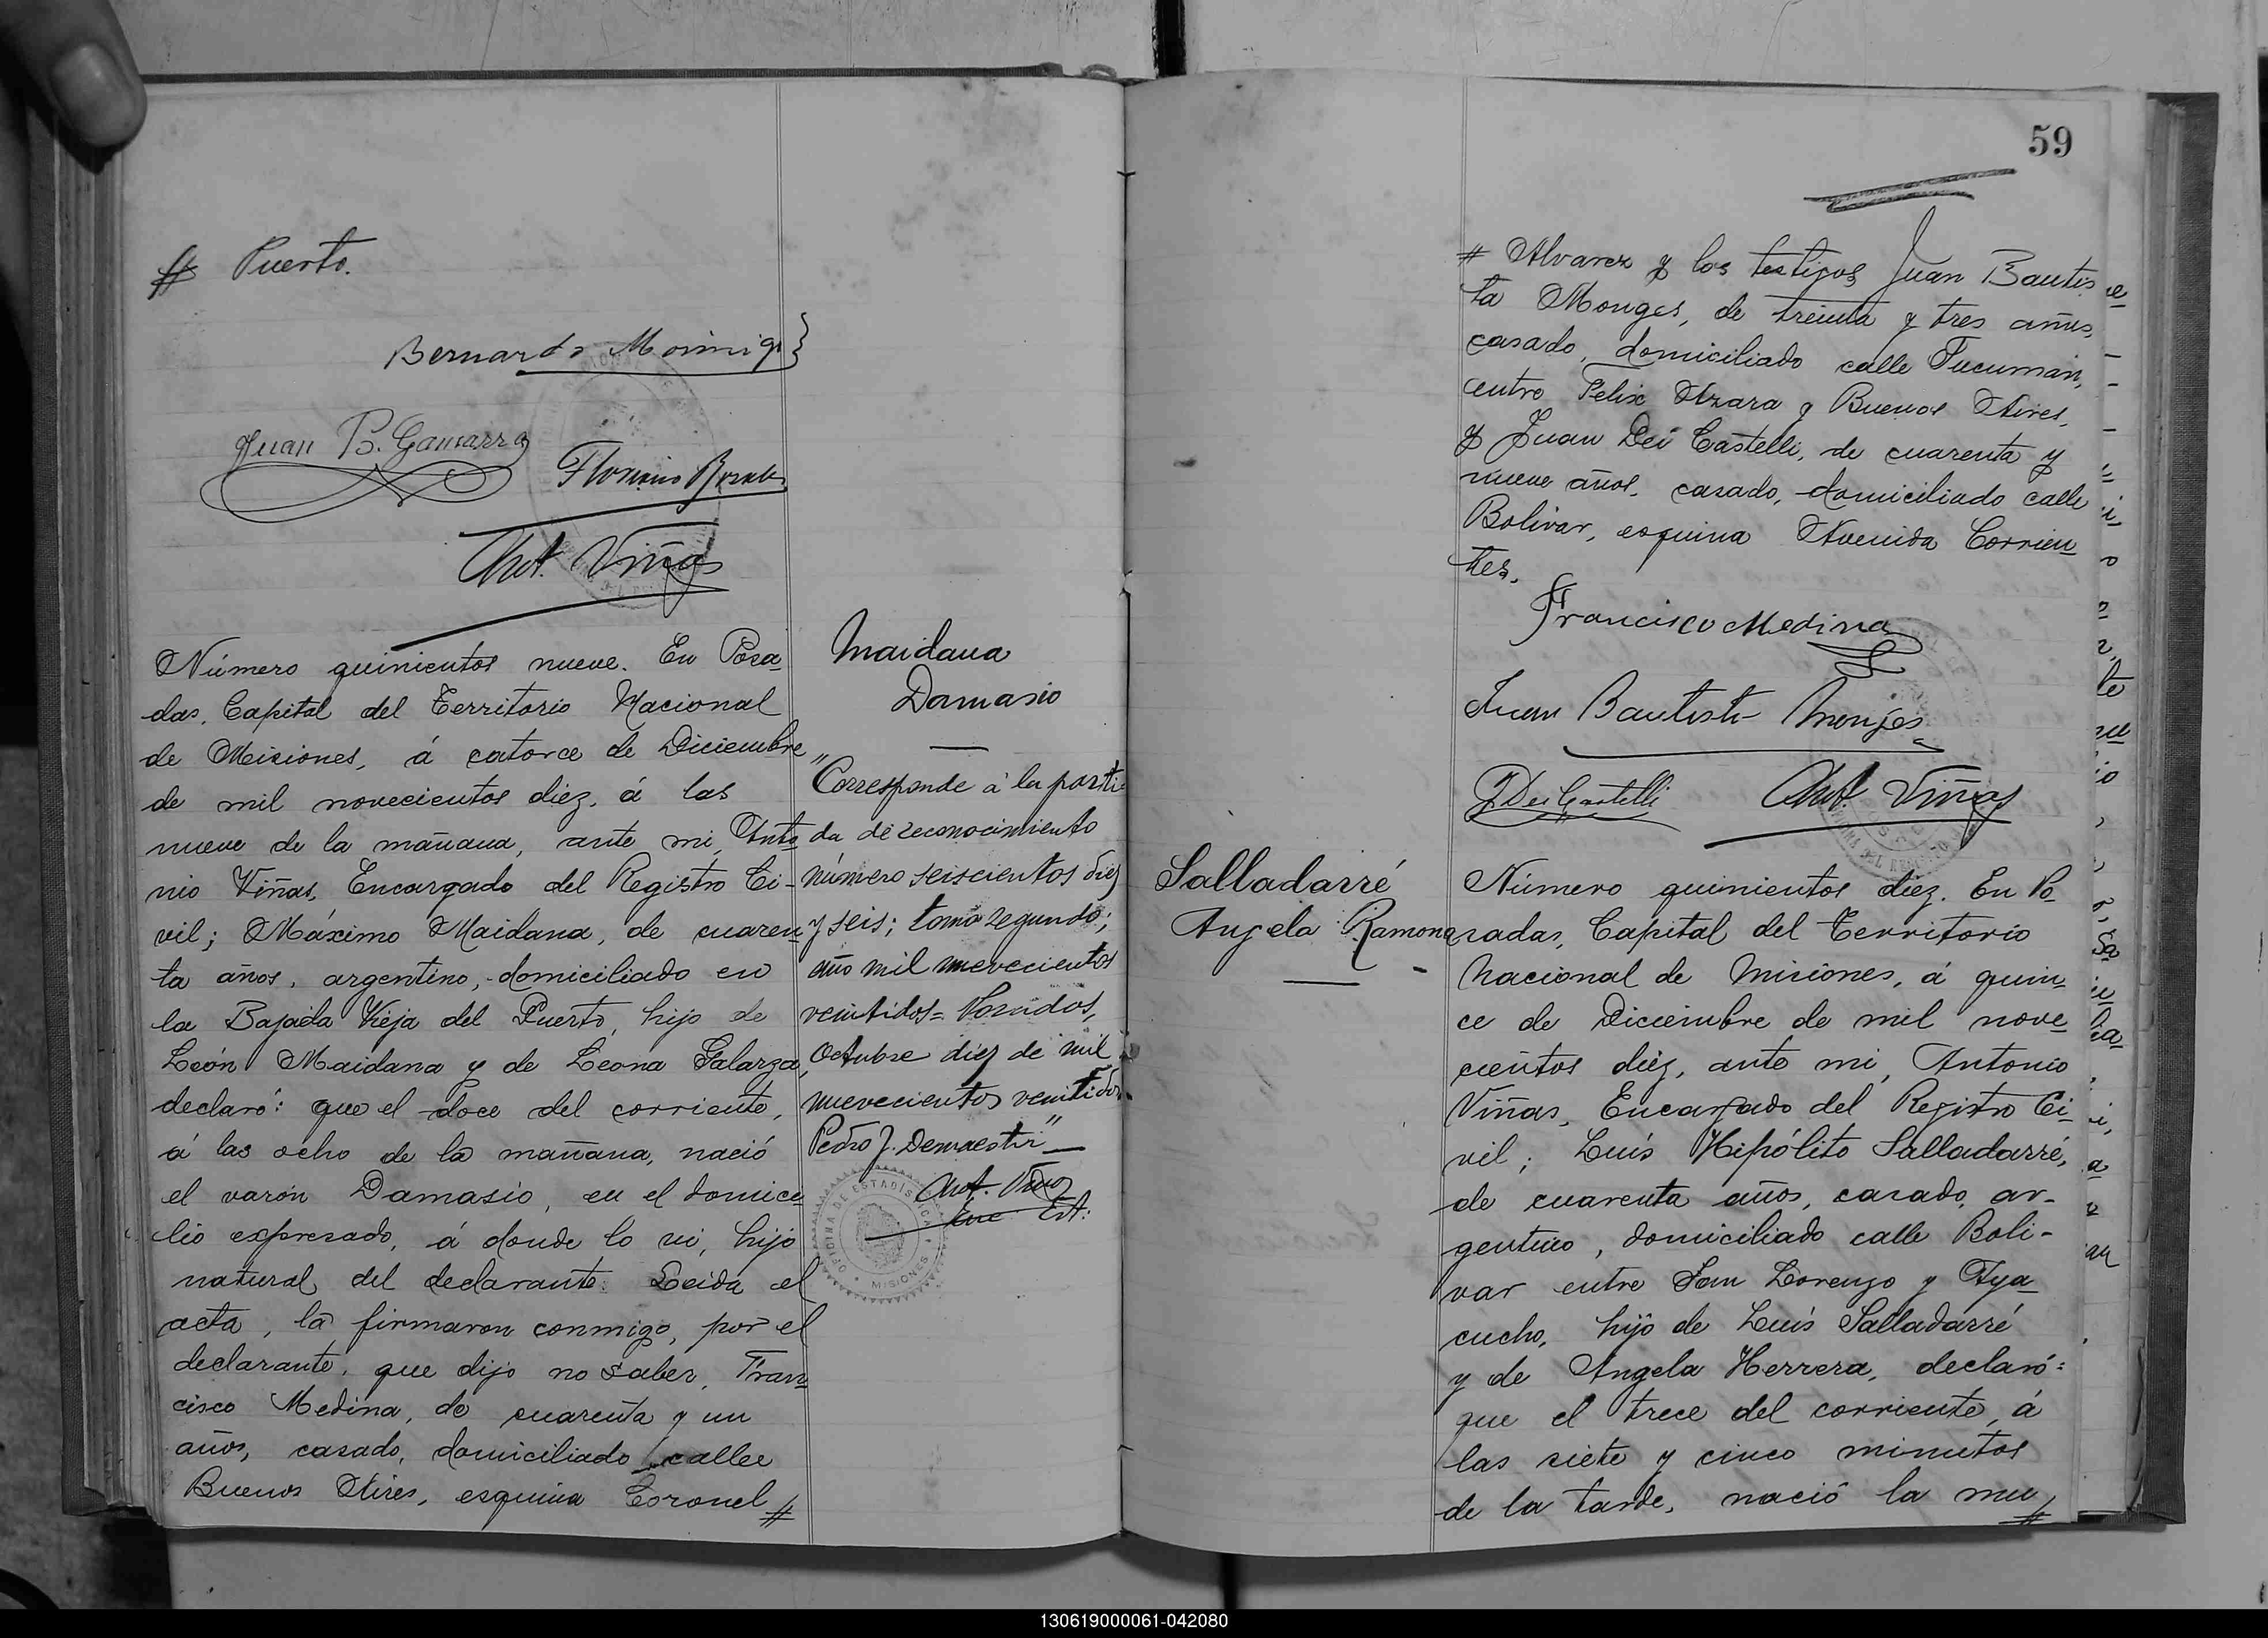 # Puerto.
Bernardo Moinigi
Juan B. Gamarra
Floriano Rosales
Ant. Viñas
Número quinientos nueve. En Posa
das, Capital del Territorio Nacional
de Misiones, á catorce de Diciembre
de mil novecientos diez, á las
nueve de la mañana, ante mi, Anto
nio Viñas, Encargado del Registro Ci-
vil; Máximo Maidana, de cuaren
ta años, argentino, domiciliado en
la Bajada Vieja del Puerto, hijo de
León Maidana y de Leona Galarza,
declaró: que el doce del corriente,
á las ocho de la mañana, nació
el varón Damasio, en el domici
lio expresado, á donde lo vi, hijo
natural del declarante. Leida el
acta, la firmaron conmigo, por el
declarante, que dijo no saber, Fran
cisco Medina, de cuarenta y un
años, casado, domiciliado calle
Buenos Aires, esquina Coronel #
Maidana
Damasio
"Corresponde á la parti-
da de reconocimiento
número seiscientos diez
y seis; tomo segundo;
año mil nuevecientos
veintidos= Posadas,
Octubre diez de mil
nuevecientos veintidos.
Pedro J. Demaestri"
Ant. Viñas
Enc Est:
OFICINA DE ESTADÍSTICA
MISIONES
59
# Alvarez y los testigos Juan Bautis
ta Monges, de treinta y tres años,
casado, domiciliado calle Tucumán,
entre Felix Azara y Buenos Aires,
y Juan Dei Castelli, de cuarenta y
nueve años, casado, domiciliado calle
Bolivar, esquina Avenida Corrien
tes.
Francisco Medina
Juan Bautista Monjes
J Dei Castelli
Ant Viñas
Salladarré
Angela Ramona
Número quinientos diez. En Po-
sadas, Capital del Territorio
Nacional de Misiones, á quin-
ce de Diciembre de mil nove-
cientos diez, ante mi, Antonio
Viñas, Encargado del Registro Ci-
vil; Luís Hipólito Salladarré,
de cuarenta años, casado, ar-
gentino, domiciliado calle Boli-
var entre San Lorenzo y Aya
cucho, hijo de Luís Salladarré
y de Angela Herrera, declaró:
que el trece del corriente, á
las siete y cinco minutos
de la tarde, nació la mu #
130619000061-042080